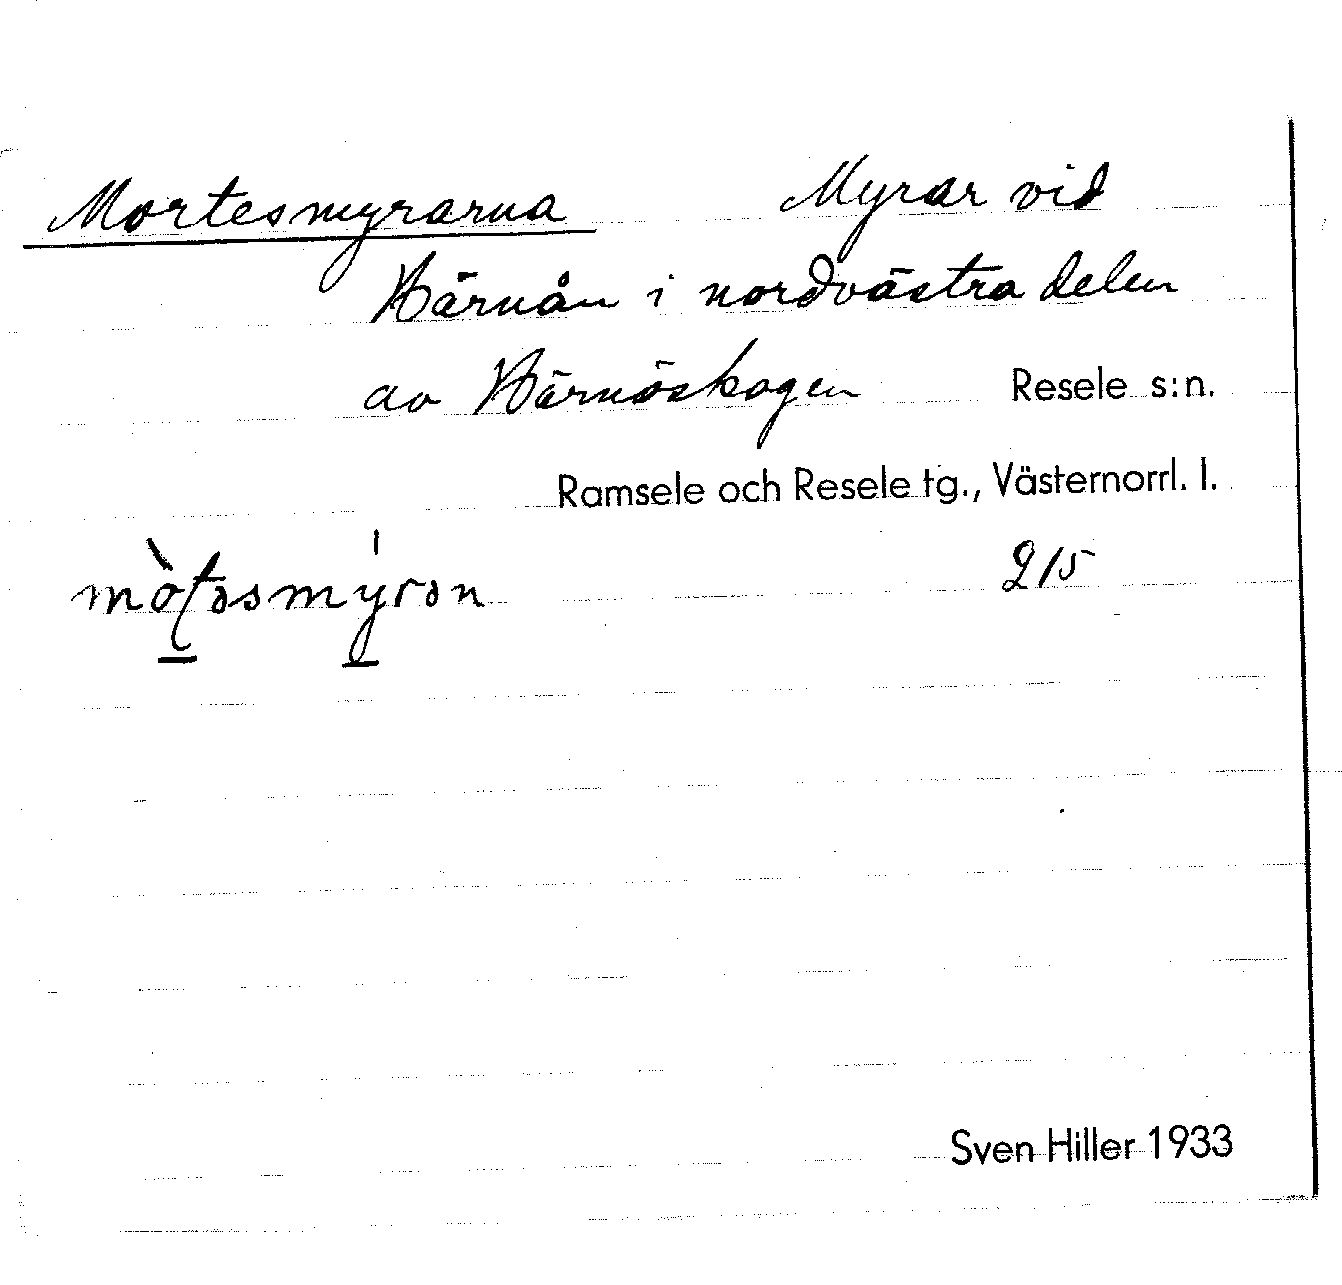 Mortesmyrarna Myrar vid
Härnån i nordvästra delen
av Härnöskogen Resele s:n.
Ramsele och Resele tg., Västernorrl. l.
215
Sven Hiller 1933